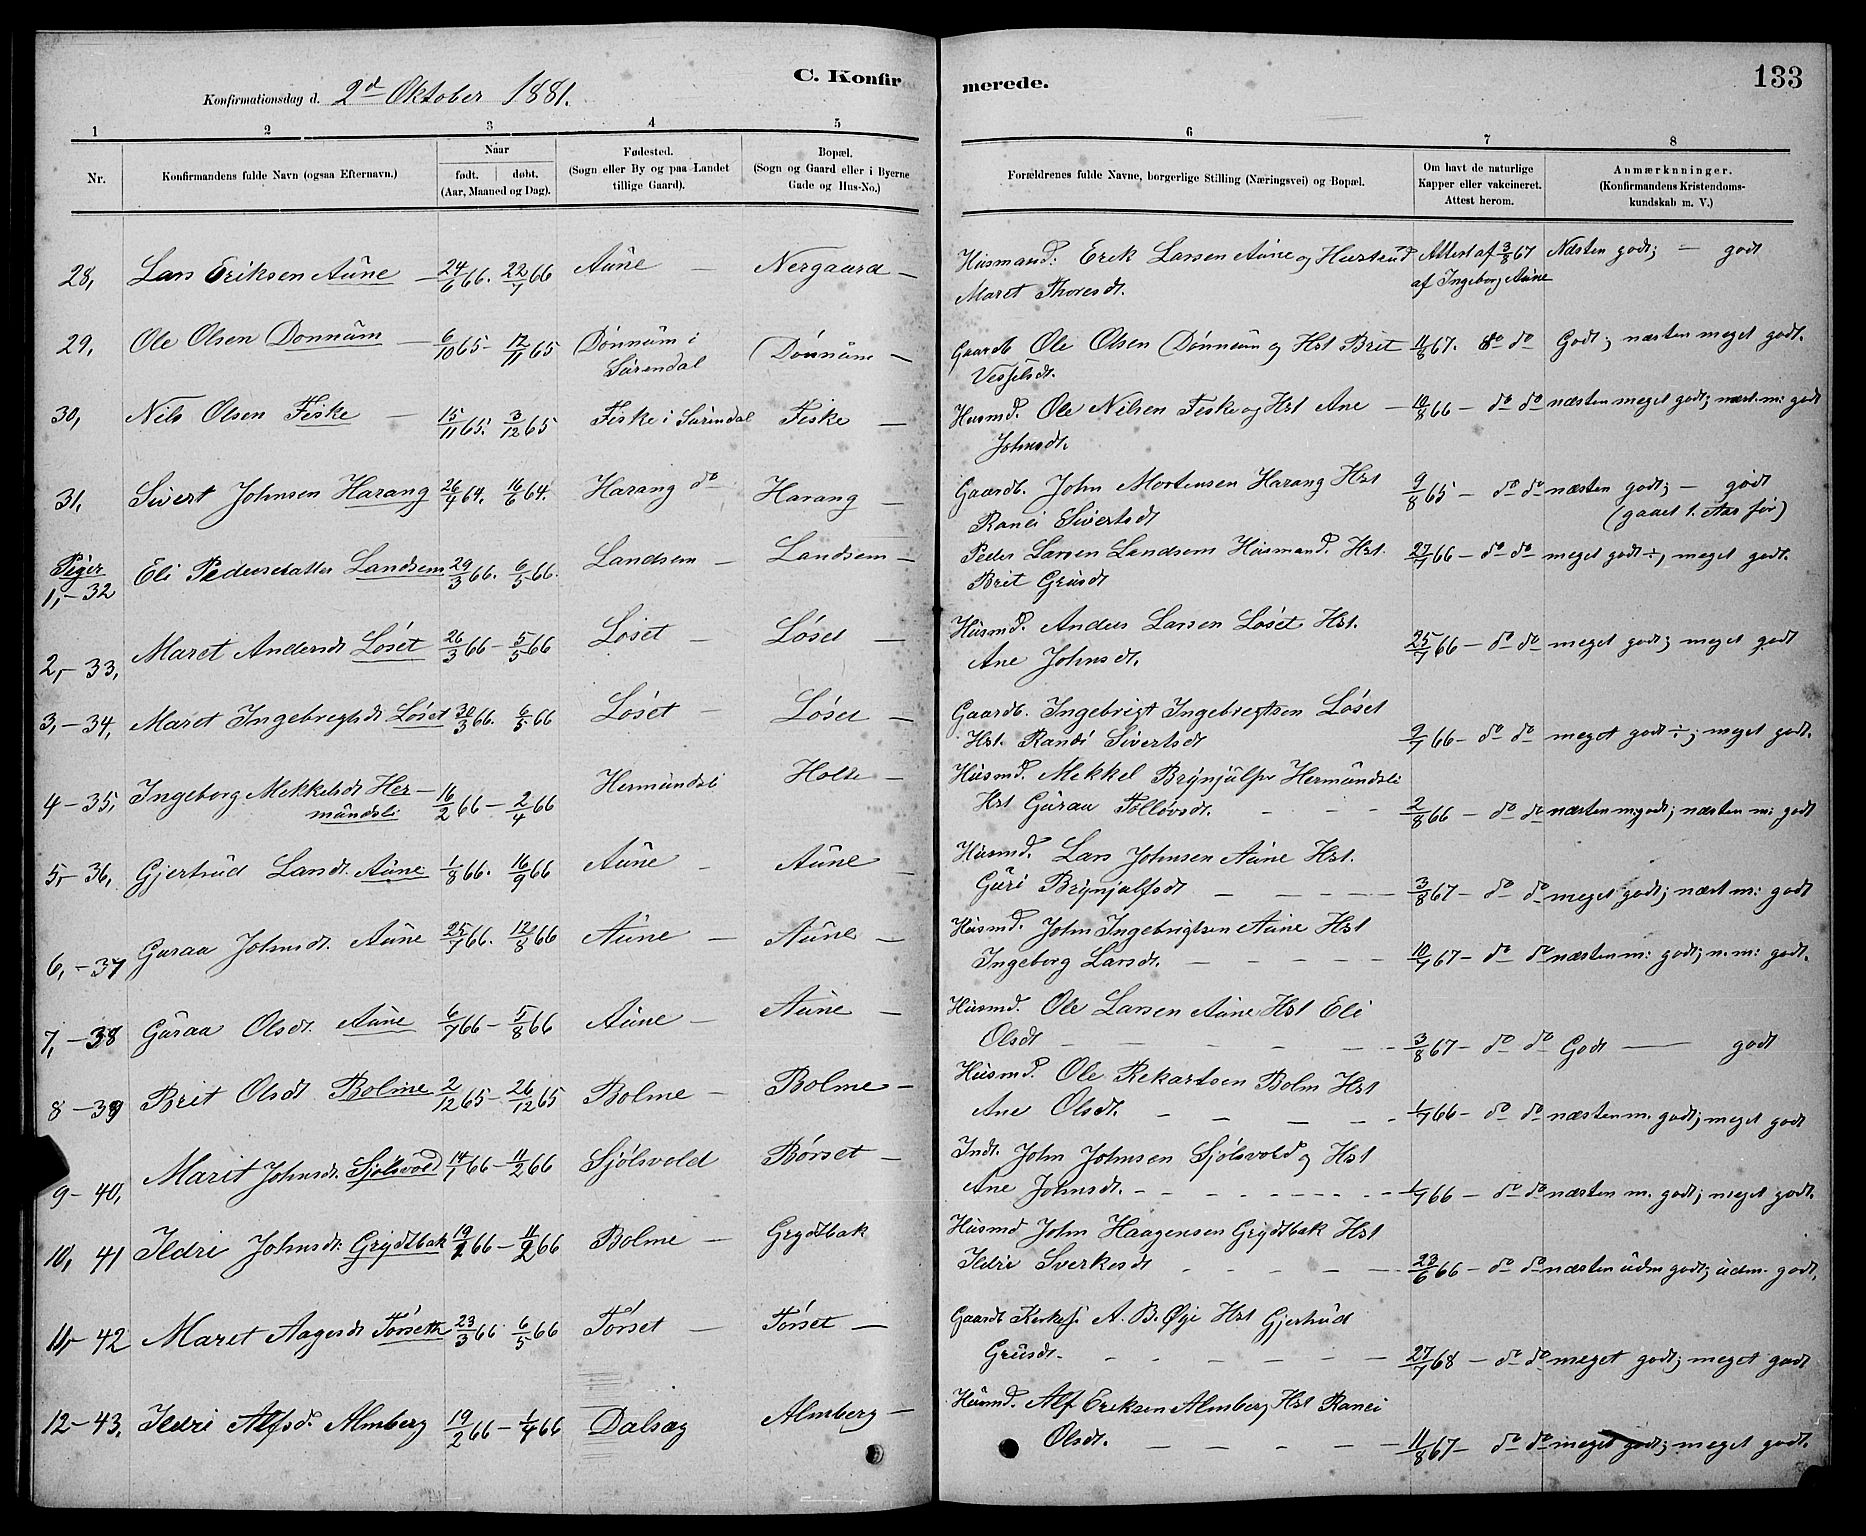 C. Konfirmerede.
133
Konfirmationsdag d. 2d Oktober 1881.
1 2 3 4 5 6 7 8
Nr. Konfirmandens fulde Navn (ogsaa Efternavn.) Naar født. døbt. (Aar, Maaned og Dag). Fødested. (Sogn eller By og paa Landet tillige Gaard). Bopæl. (Sogn og Gaard eller i Byerne Gade og Hus-No.) Forældrenes fulde Navne, borgerlige Stilling (Næringsvei) og Bopæl. Om havt de naturlige Kapper eller vakcineret. Attest herom. Anmærkninger. (Konfirmandens Kristendomskundskab m. V.)
28, Lars Eriksen Aune — 24/6 66. 22/7 66 Aune — Nergaard — Husmand. Erik Larsen Aune og Hustrud Attest af 3/8 67 Næsten godt; — godt
Maret Thoresdt. af Ingeborg Aune
29, Ole Olsen Donnum — 6/10 65 - 12/11 65 Dønnum i Surendal Dønnum — Gaardb Ole Olsen Dønnum og Hst Brit 11/8 67. do do Godt; næsten meget godt.
Vesselsdt.
30, Nils Olsen Fiske — 15/11 65. 3/12 65 Fiske i Surendal Fiske — Husmd. Ole Nilsen Fiske og Hst Ane — 10/8 66 — do do næsten meget godt; næst. m: godt
Johnsdt.
31, Sivert Johnsen Harang 26/4 64. 16/6 64. Harang do Harang — Gaardb. John Mortensen Harang Hst 9/8 65 — do do næsten godt; — godt
Ranei Sivertsdt (gaaet 1. Aar før)
Piger
1, - 32 Eli Pedersdatter Landsem 29/3 66. 6/5 66. Landsem — Landsem — Peder Larsen Landsem Husmand. Hst. 27/7 66 — do do meget godt ÷, meget godt.
Brit Grusdt
2, - 33, Maret Andersdt Løset 26/3 66 - 5/5 66 Løset — Løset — Husmd. Anders Larsen Løset Hst. 25/7 66 — do do meget godt; meget godt
Ane Johnsdt.
3, - 34, Maret Ingebregtsdt Løset 30/3 66. 6/5 66 Løset — Løset — Gaardb. Ingebrigt Ingebregtsen Løset
Hst. Randi Sivertsdt 2/7 66 - do do meget godt ÷; meget godt.
4 - 35, Ingeborg Mekkelsdt Hermundsli 16/2 66 - 2/4 66 Hermundsli Holte — Husmd. Mekkel Brynjulfs Hermundsli
Hst Guraa Tolløvsdt. 2/8 66 — do do næsten m godt; næsten m: godt
5, - 36, Gjertrud Larsdt. Aune 1/8 66. 16/9 66 Aune — Aune — Husmd. Lars Johnsen Aune Hst.
Guri Brynjulfsdt — — — 3/8 67 — do do meget godt; næst m: godt
6, - 37 Guraa Johnsdt. Aune 25/7 66. 12/8 66 Aune — Aune — Husmd. John Ingebrigtsen Aune Hst
Ingeborg Larsdt. — — — 10/7 67 - do do næsten m: godt; n. m: godt.
7, - 38 Guraa Olsdt. Aune 6/7 66 - 5/8 66 Aune — Aune — Husmd. Ole Larsen Aune Hst Eli
Olsdt — — — 3/8 67 - do do Godt — godt
8 - 39 Brit Olsdt Bolme 2/12 65 - 26/12 65 Bolme — Bolme — Husmd. Ole Rekartsen Bolm Hst
Ane Olsdt. — — — 1/7 66 - do do næsten m. godt; meget godt
9 - 40, Marit Johnsdt. Sjølsvold 14/1 66 - 11/2 66 Sjølsvold Børset — Indt. John Johnsen Sjølsvold og Hst
Ane Johnsdt. - - - 1/7 66 — do do næsten m. godt; meget godt.
10, 41 Ildri Johnsdt: Grydtbak 19/1 66 - 11/2 66 Bolme — Grydtbak Husmd John Haagensen Grydtbak Hst
Ildri Sverkesdt - - - 23/6 66 - do do næsten udm godt; udm. godt.
11, - 42 Maret Aagesdt Torseth 23/3 66 6/5 66 Tørset — Tørset — Gaardb Kirkes. A. B. Øye Hst Gjertrud
Grusdt. - - - 27/7 68 — do do meget godt; meget godt
12 - 43. Ildri Alfsd. Almberg 19/2 66 - 1/4 66 Dalsæg Almberg — Husmd. Alf Eriksen Almberg Hst Ranei
Olsdt. — — — 11/8 67 - do do meget godt; meget godt.